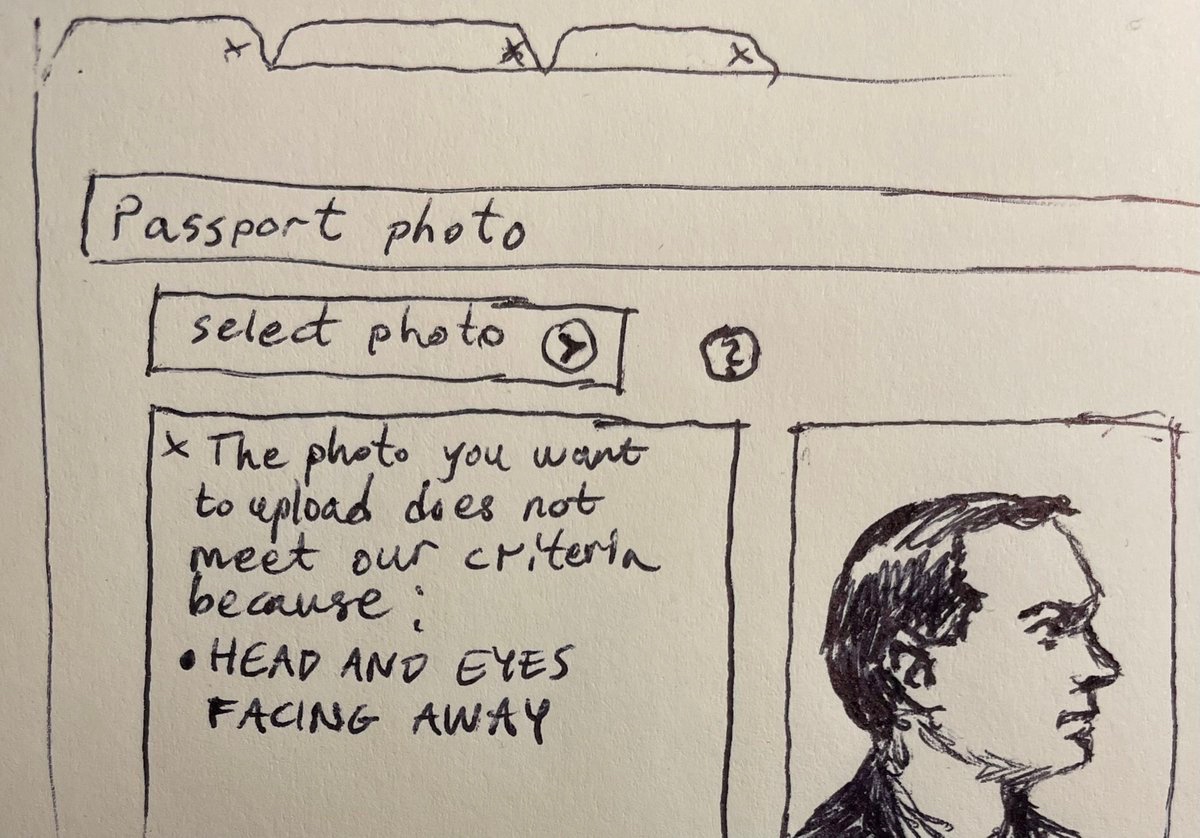 Passport photo
select photo
?
x The photo you want
to upload does not
meet our criteria
because:
• HEAD AND EYES
FACING AWAY